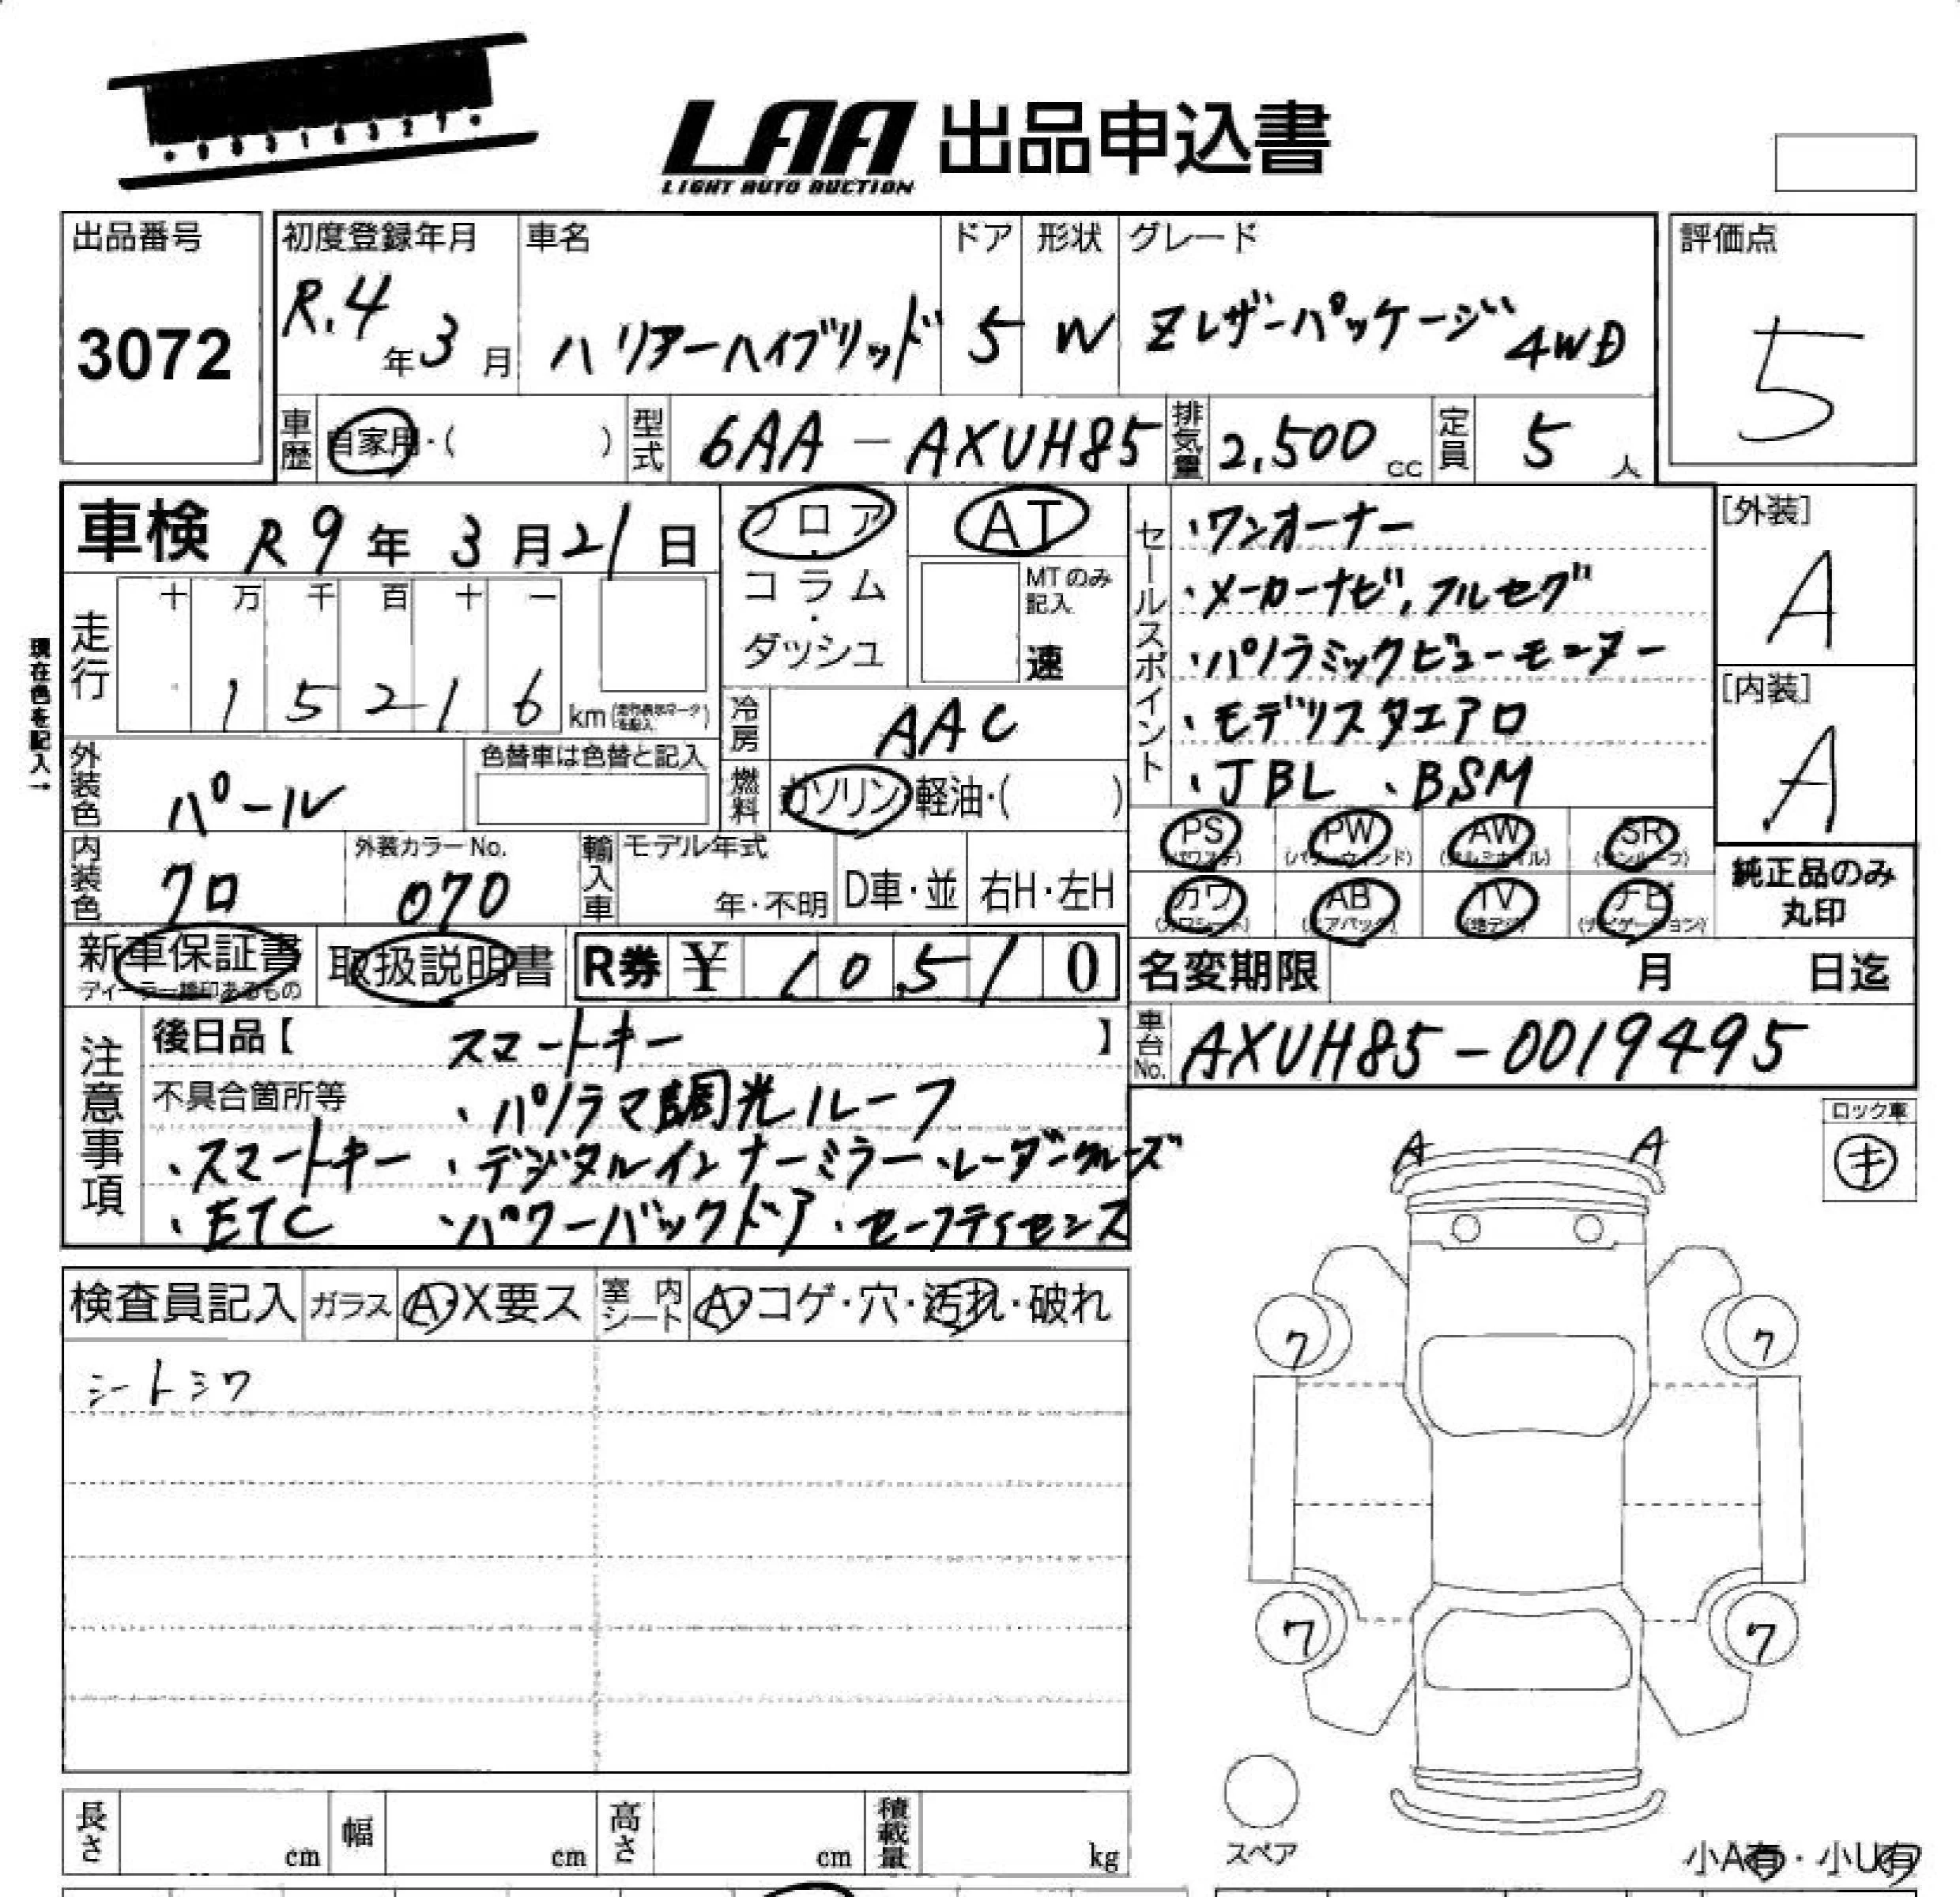 LAA 出品申込書
LIGHT AUTO AUCTION
出品番号
3072
初度登録年月
R.4年3月
車名
ハリアーハイブリッド
ドア
5
形状
W
グレード
Zレザーパッケージ 4WD
評価点
5
車歴 自家用・( )
型式 6AA-AXUH85
排気量 2,500 cc
定員 5 人
車検 R9年3月21日
フロア・コラム・ダッシュ
AT
MTのみ記入
速
セールスポイント
・ワンオーナー
・メーカーナビ、フルセグ
・パノラミックビューモニター
・モデリスタエアロ
・JBL ・BSM
[外装]
A
[内装]
A
現在色を記入→
走行
十 万 千 百 十 一
1 5 2 1 6 km
冷房 AAC
外装色 パール
色替車は色替と記入
燃料 ガソリン・軽油・( )
内装色 クロ
外装カラーNo.
070
輸入車
モデル年式
年・不明
D車・並
右H・左H
PS PW AW SR
(パワステ) (パワーウィンド) (アルミホイル) (サンルーフ)
カワ AB TV ナビ
(カワシート) (エアバック) (地デジ) (ナビゲーション)
純正品のみ
丸印
新車保証書
ディーラー捺印あるもの
取扱説明書
R券 ¥ 10,510
名変期限 月 日迄
注意事項
後日品【 スマートキー 】
不具合箇所等 ・パノラマ調光ルーフ
・スマートキー ・デジタルインナーミラー ・レーダークルーズ
・ETC ・パワーバックドア ・セーフティセンス
車台No. AXUH85-0019495
ロック車
キ
A A
検査員記入 ガラス A・X要ス 室内シート A・コゲ・穴・汚れ・破れ
シートシワ
7 7
7 7
スペア
長さ cm 幅 cm 高さ cm 積載量 kg
小A有・小U有